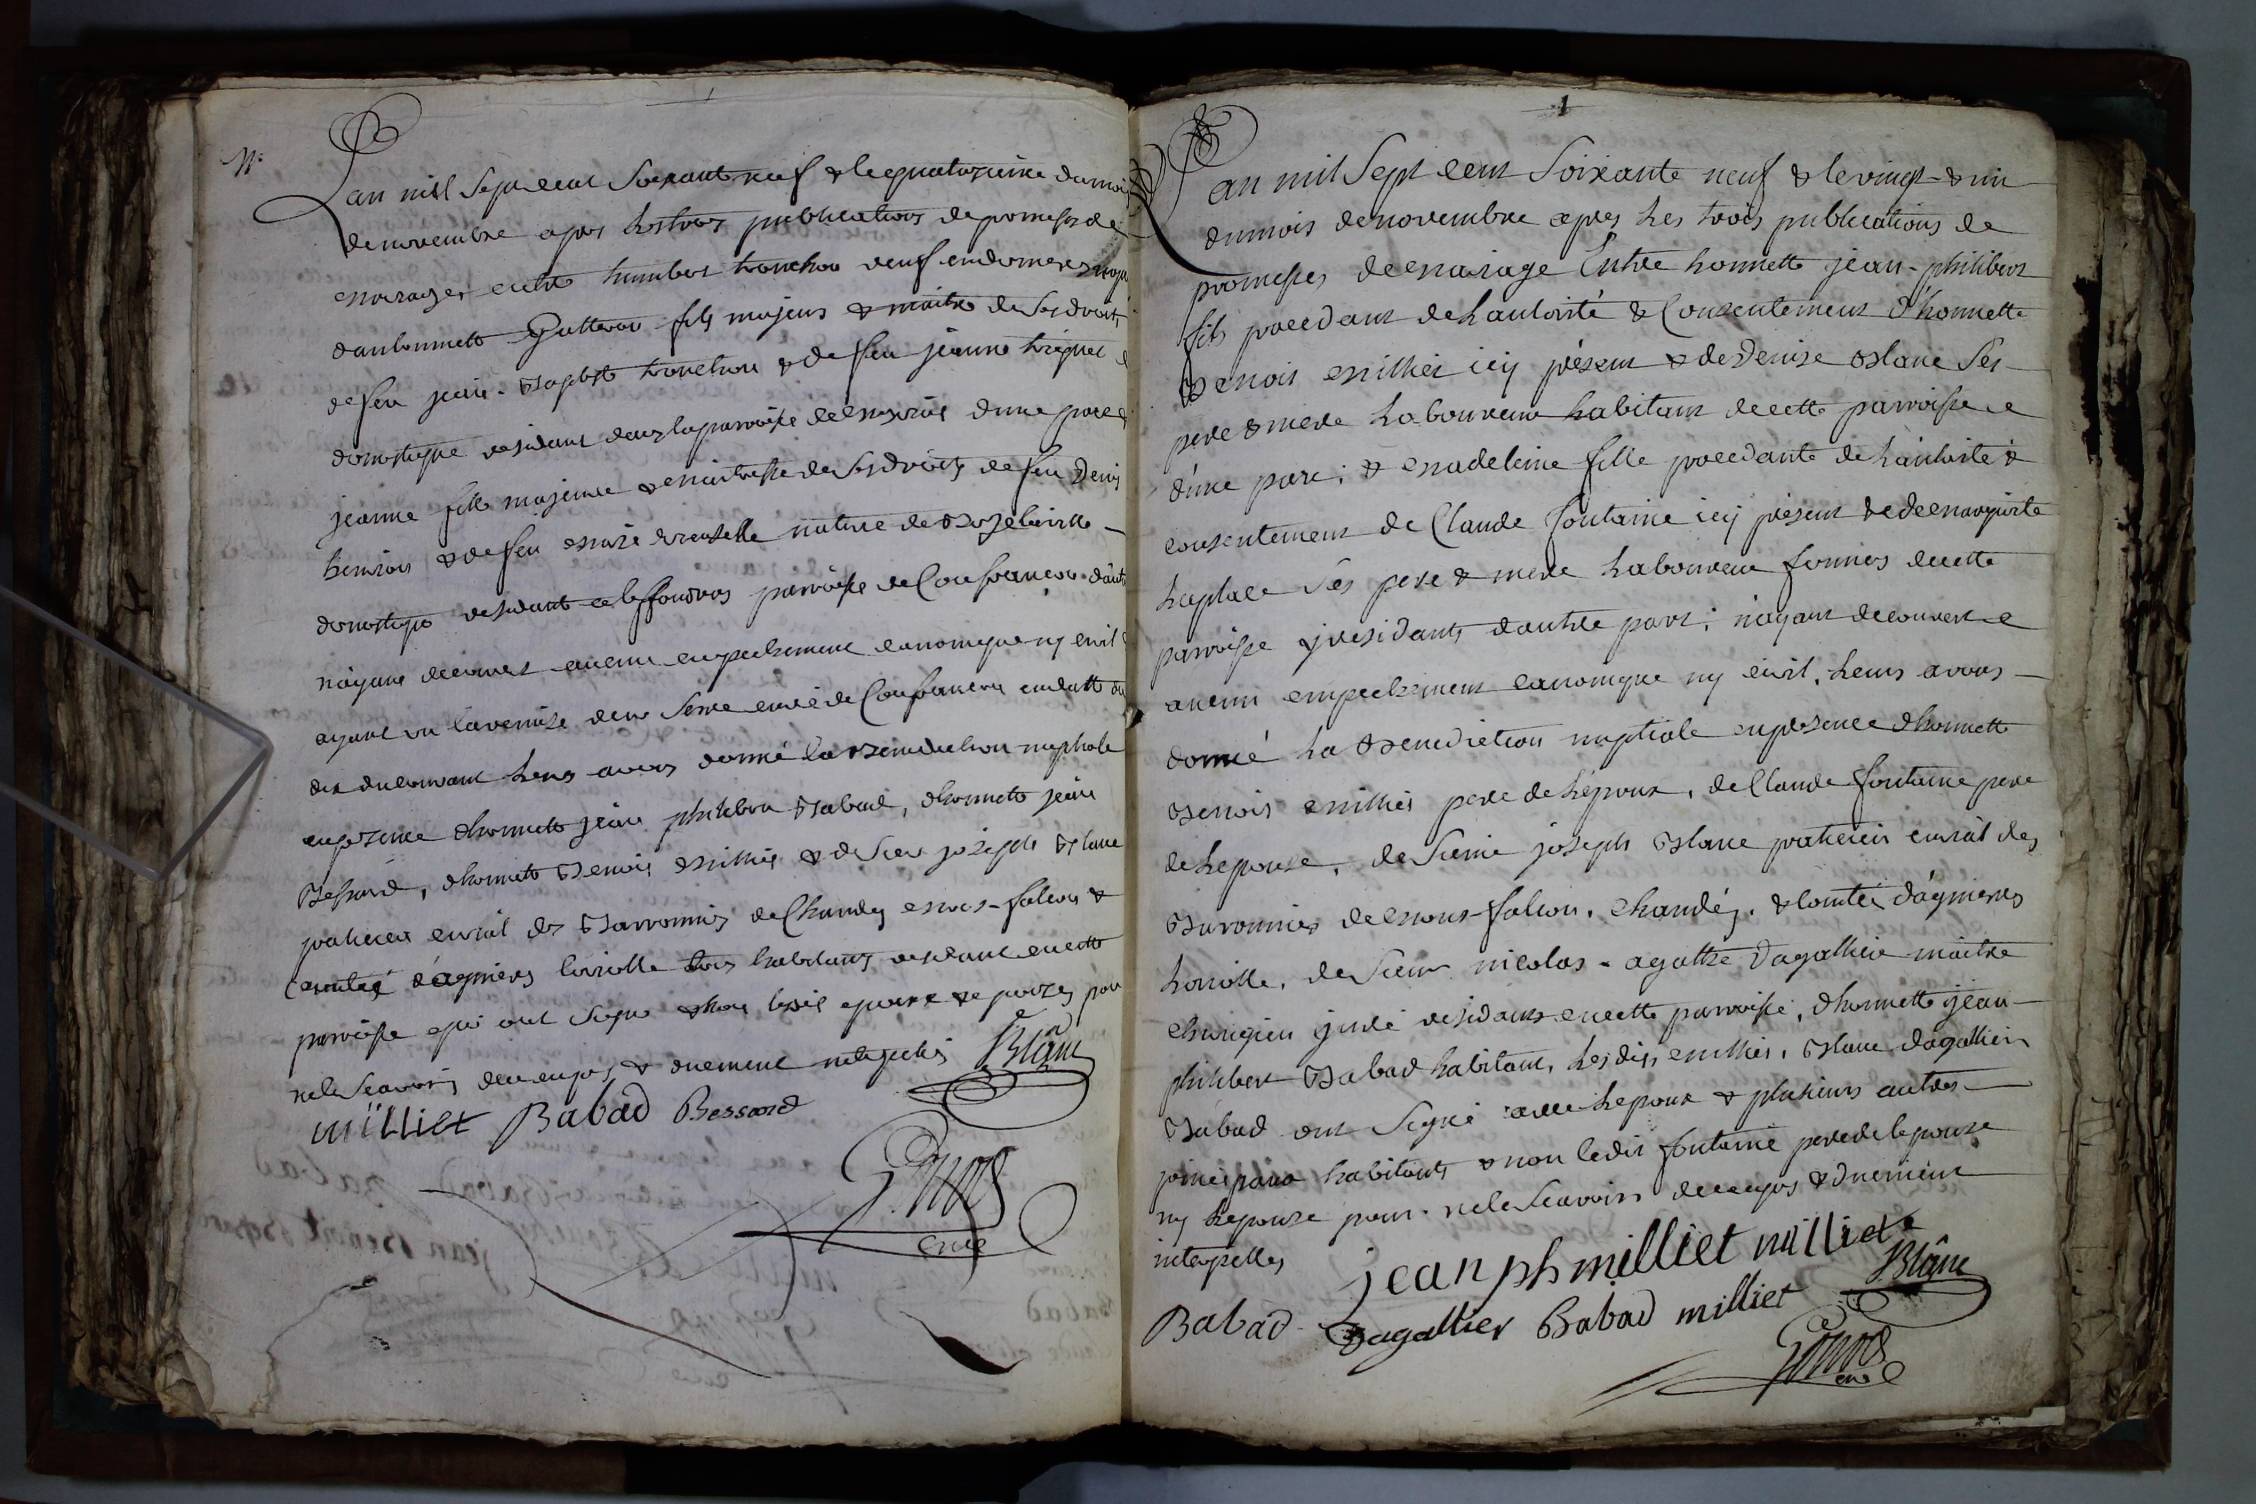 Lan mil Sept cent Soixante neuf & le quatorzieme du mois
de novembre apres les trois publications de promesses de
mariage, entre humbert tronchon veuf en dernieres
d'anthonnette Gutteron fils majeur & maitre de ses droits
de feu jean-Baptiste tronchon & de feu jeanne
domestique residant dans la parroisse de d'une part &
jeanne fille majeure & maitresse de ses droits de feu Denis
& de feu marie native de
domestique residante parroisse de Confrancon d'autre
n'ayant decouvert aucun empechement canonique ny civil &
ayant vu la remise de mr Seme curé de Confrancon en datte du
dix du courant leurs avons donné la Benediction nuptiale
en presence d'honnette jean philibert Babad, d'honnette jean
Bessard, d'honnette Benoit Milliet & de sieur joseph Blanc
praticien curial des Barronnies de Chandeé mons-falcon &
Comtée d'agnieres loriolle tous habitants residant en cette
parroisse qui ont signé & non lesdits epoux & epouze, pour
ne le scavoir, de ce enquis & duement interpellés Blanc
milliet Babad Bessard
Gonod
curé
1
Lan mil Sept cent Soixante neuf & le vingt & un
du mois de novembre apres les trois publications de
promesses de mariage Entre honnette jean-philibert
fils procedant de l'autorité & Consentement d'honnette
Benoit milliet icy présent & de Denise Blanc Ses
pere & mere laboureur habitant de cette parroisse
d'une part; & madeleine fille procedante de l'autorité &
consentement de Claude fontaine icy présent & de marguerite
laplace Ses pere & mere laboureur fermier de cette
parroisse y residants d'autre part; n'ayant decouvert
aucun empechement canonique ny civil, leurs avons
donné la Benediction nuptiale en présence d'honnette
Benoit milliet pere de l'epoux, de Claude fontaine pere
de l'epouse, de Sieur joseph Blanc praticien curial des
Baronnies de mons-falcon, chandéé, & Comtée d'agnieres
loriolle, de Sieur nicolas-agathe dagallier maitre
chirurgien juré residants en cette parroisse, d'honnette jean-
philibert Babad habitant, lesdits milliet, Blanc, dagallier
Babad ont Signé avec l'epoux & plusieurs autres
principaux habitants & non ledit fontaine pere de l'epouse
ny l'epouze pour ne le Scavoir de ce enquis & duement
interpellés
jean ph milliet milliet
Blanc
Babad Dagallier Babad milliet
Gonod
curé